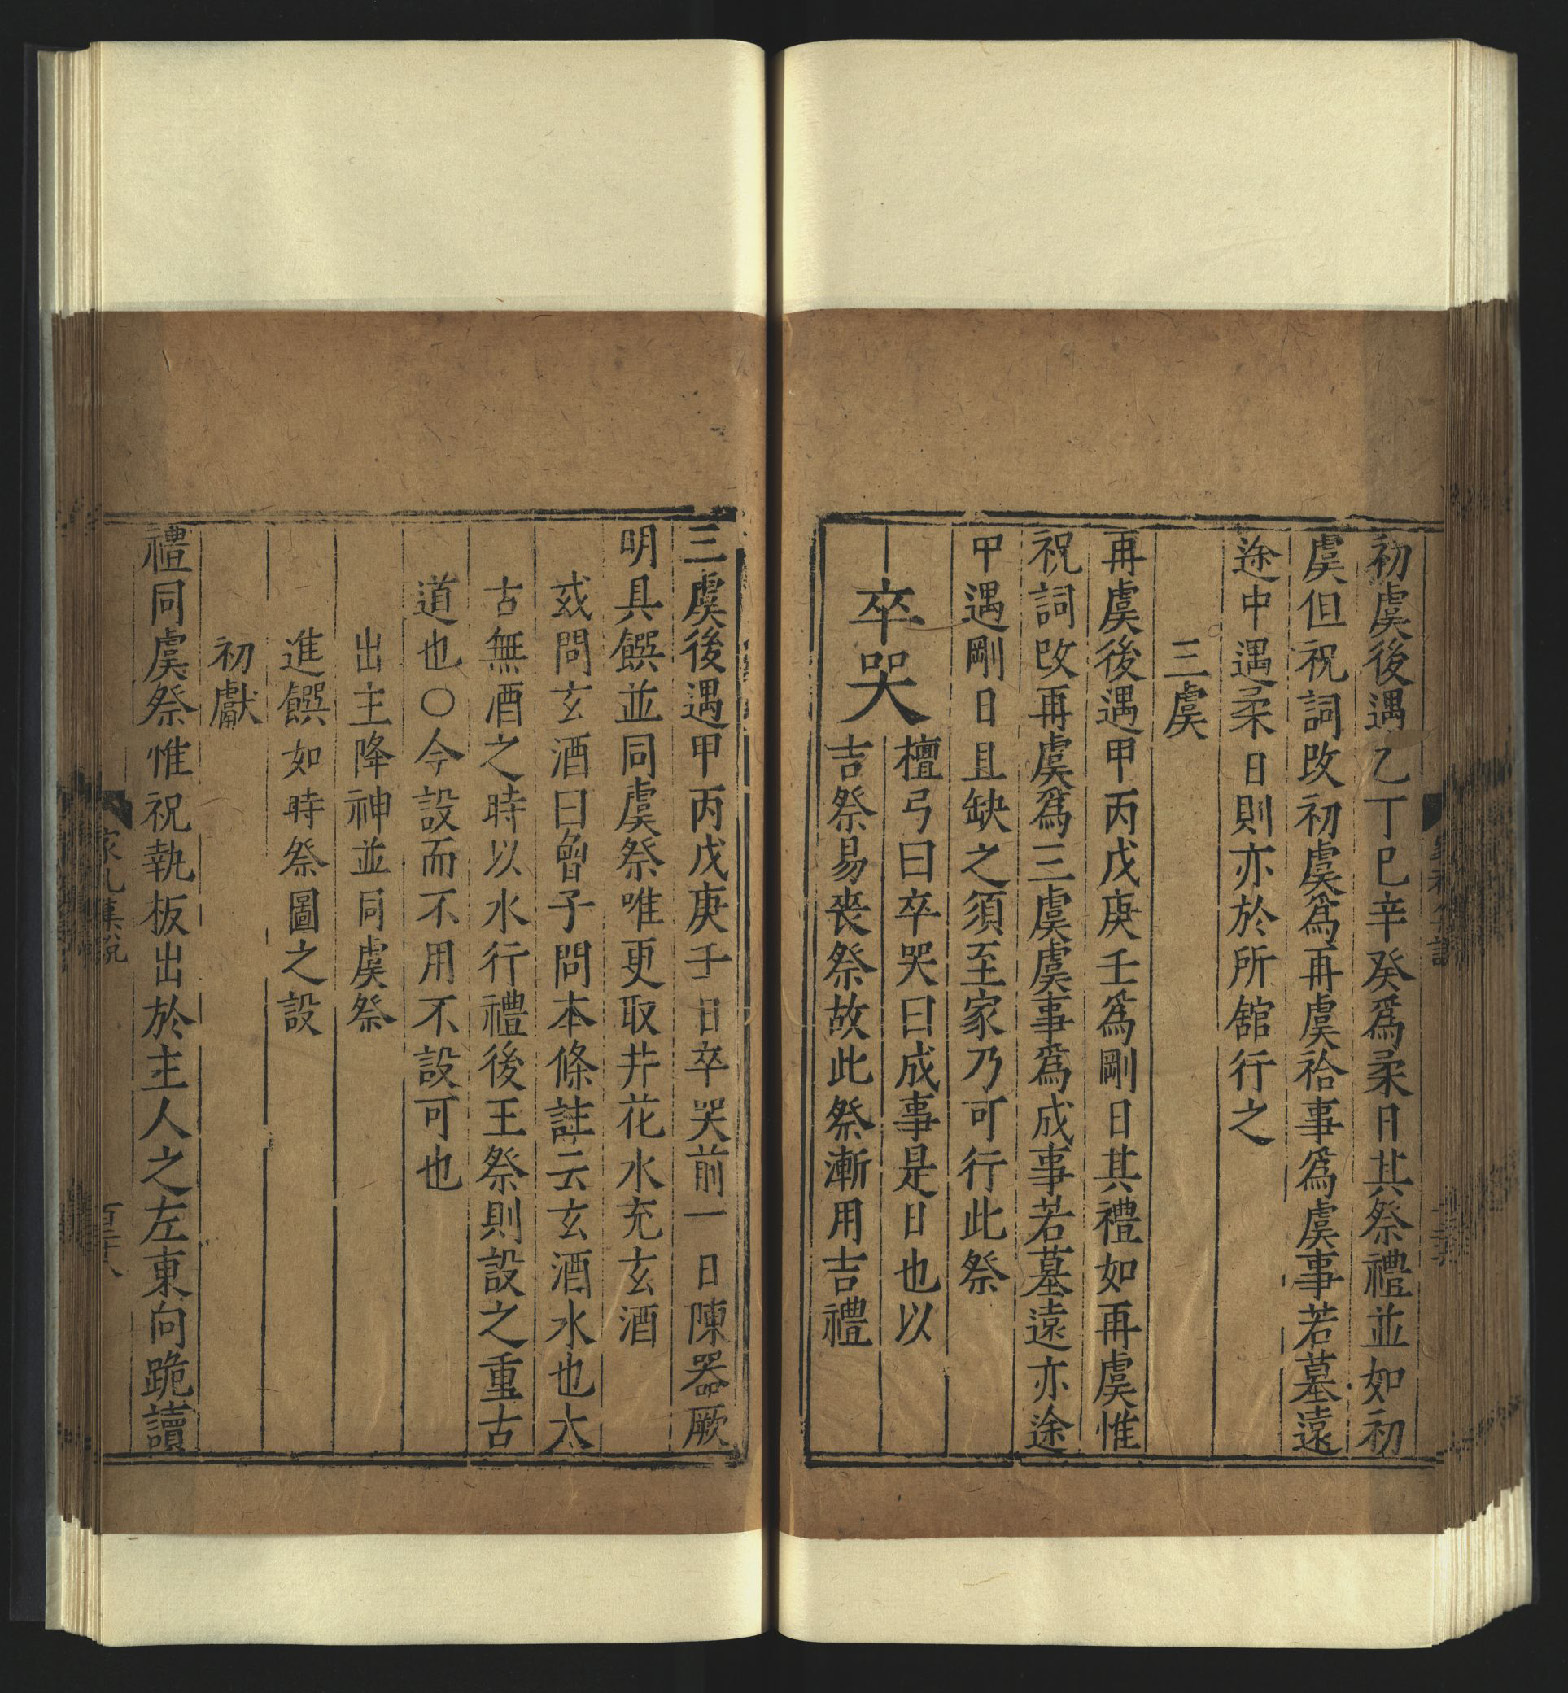 初虞後遇乙丁巳辛癸爲柔日其祭禮並如初
虞但祝詞改初虞爲再虞祫事爲虞事若墓遠
途中遇柔日則亦於所舘行之
三虞
再虞後遇甲丙戊庚壬爲剛日其禮如再虞惟
祝詞改再虞爲三虞虞事爲成事若墓遠亦途
中遇剛日且缺之須至家乃可行此祭
卒哭
檀弓曰卒哭曰成事是日也以
吉祭易喪祭故此祭漸用吉禮
三虞後遇甲丙戊庚壬日卒哭前一日陳器厥
明具饌並同虞祭唯更取井花水充玄酒
或問玄酒曰曾子問本條註云玄酒水也太
古無酒之時以水行禮後王祭則設之重古
道也〇今設而不用不設可也
出主降神並同虞祭
進饌如時祭圖之設
初獻
禮同虞祭惟祝執板出於主人之左東向跪讀
家礼集說